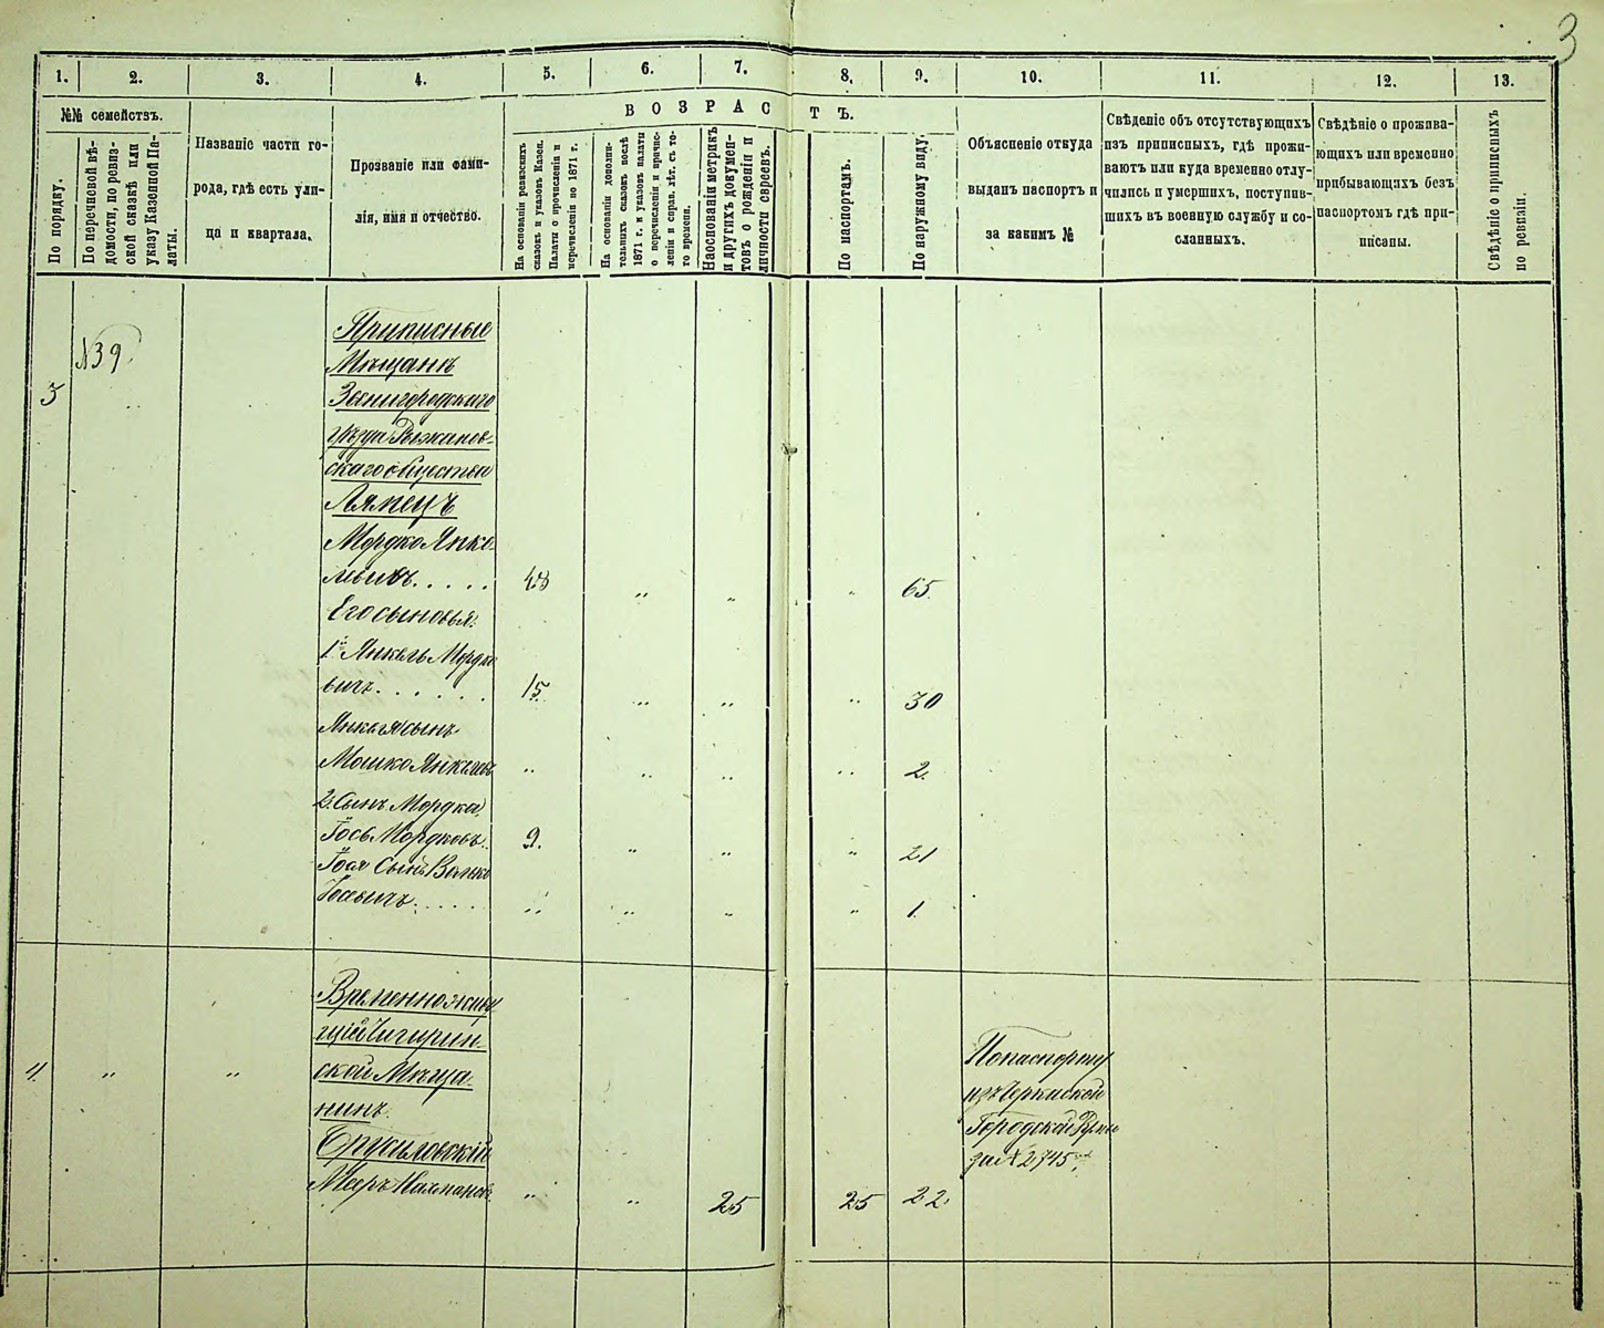 3
1. 2. 3. 4. 5. 6. 7. 8. 9. 10. 11. 12. 13.
№№ семействъ.
По порядку.
По перечневой вѣ-
домости, по ревиз-
ской сказкѣ или
указу Казенной Па-
латы.
Названіе части го-
рода, гдѣ есть ули-
ца и квартала.
Прозваніе или фами-
лія, имя и отчество.
ВОЗРАСТЪ.
На основаніи ревизскихъ
сказокъ и указовъ Казен.
Палаты о причисленіи и
перечисленіи по 1871 г.
На основаніи дополни-
тельныхъ сказокъ послѣ
1871 г. и указовъ палаты
о перечисленіи и причис-
леніи и справ. лѣт. съ то-
го времени.
На основаніи метрикъ
и другихъ докумен-
товъ о рожденіи и
личности евреевъ.
По паспортамъ.
По наружному виду.
Объясненіе откуда
выданъ паспортъ и
за какимъ №
Свѣденіе объ отсутствующихъ
изъ приписныхъ, гдѣ прожи-
ваютъ или куда временно отлу-
чились и умершихъ, поступив-
шихъ въ военную службу и со-
сланныхъ.
Свѣдѣніе о прожива-
ющихъ или временно
прибывающихъ безъ
паспортомъ гдѣ при-
писаны.
Свѣдѣніе о приписныхъ
по ревизіи.
3
№39.
Приписные
Мѣщанъ
Звенигородскаго
уѣзда Рыжанов-
скаго общества
Ляпецъ
Мордко Янке-
левичъ..... 48 " " " 65.
Его сыновья:
1й Янкель Мордко
вичъ...... 15. " " " 30
Янкеля сынъ
Мошко Янкелевъ " " " " 2.
2. Сынъ Мордка
Іось Мордковъ. 9. " " " 21
Іося Сынъ Волько
Іосевичъ..... " " " " 1.
4. " "
Временноживу
щій Чигирин-
ской Мѣща-
нинъ.
Брусиловскій
Мееръ Калманов. " " 25 25 22.
По паспорту
изъ Черкаской
Городской
за №2745